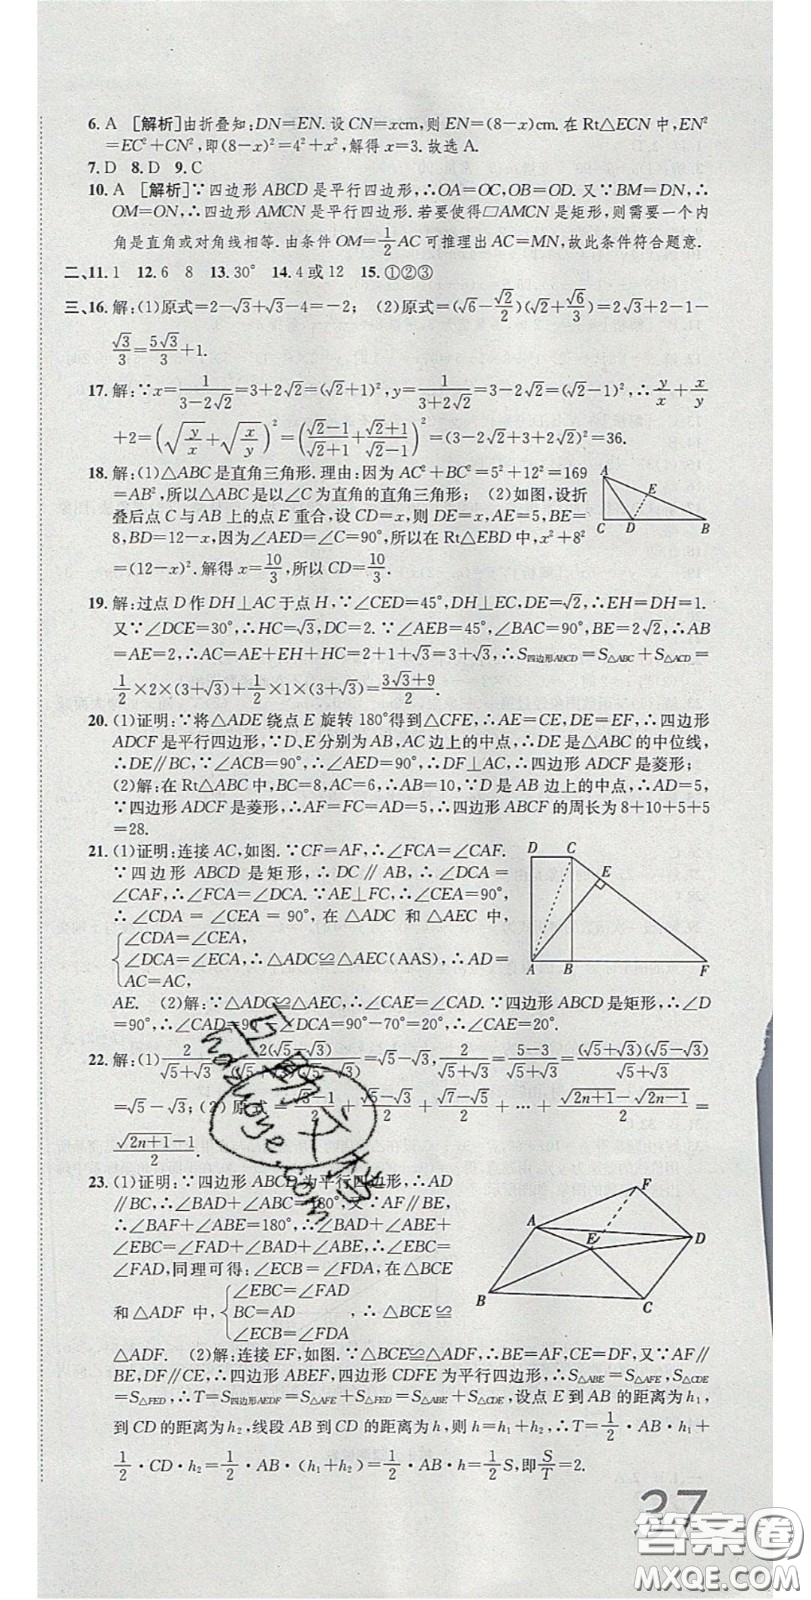 6. A [解析]由折叠知:DN=EN.设CN=xcm,则EN=(8-x)cm.在Rt△ECN中,EN²
=EC²+CN²,即(8-x)²=4²+x²,解得x=3.故选A.
7. D 8. D 9. C
10. A [解析]∵四边形ABCD是平行四边形,∴OA=OC,OB=OD.又∵BM=DN,∴
OM=ON,∴四边形AMCN是平行四边形.若要使得□AMCN是矩形,则需要一个内
角是直角或对角线相等.由条件OM=1/2AC可推理出AC=MN,故此条件符合题意.
二、11. 1 12. 6 8 13. 30° 14. 4或12 15. ①②③
三、16. 解:(1)原式=2-√3+√3-4=-2; (2)原式=(√6-√2/2)(√2+√6/3)=2√3+2-1-
√3/3=5√3/3+1.
17. 解:∵x=1/(3-2√2)=3+2√2=(√2+1)²,y=1/(3+2√2)=3-2√2=(√2-1)²,∴y/x+x/y
+2=(√(y/x)+√(x/y))²=((√2-1)/(√2+1)+(√2+1)/(√2-1))²=(3-2√2+3+2√2)²=36.
18. 解:(1)△ABC是直角三角形.理由:因为AC²+BC²=5²+12²=169
=AB²,所以△ABC是以∠C为直角的直角三角形; (2)如图,设折
叠后点C与AB上的点E重合,设CD=x,则DE=x,AE=5,BE=
8,BD=12-x,因为∠AED=∠C=90°,所以在Rt△EBD中,x²+8²
=(12-x)².解得x=10/3,所以CD=10/3.
A E C D B
19. 解:过点D作DH⊥AC于点H,∵∠CED=45°,DH⊥EC,DE=√2,∴EH=DH=1.
又∵∠DCE=30°,∴HC=√3,DC=2.∵∠AEB=45°,∠BAC=90°,BE=2√2,∴AB
=AE=2,∴AC=AE+EH+HC=2+1+√3=3+√3,∴S四边形ABCD=S△ABC+S△ACD=
1/2×2×(3+√3)+1/2×1×(3+√3)=(3√3+9)/2.
20. (1)证明:∵将△ADE绕点E旋转180°得到△CFE,∴AE=CE,DE=EF,∴四边形
ADCF是平行四边形,∵D、E分别为AB,AC边上的中点,∴DE是△ABC的中位线,
∴DE∥BC,∵∠ACB=90°,∴∠AED=90°,∴DF⊥AC,∴四边形ADCF是菱形;
(2)解:在Rt△ABC中,BC=8,AC=6,∴AB=10,∵D是AB边上的中点,∴AD=5,
∵四边形ADCF是菱形,∴AF=FC=AD=5,∴四边形ABCF的周长为8+10+5+5
=28.
21. (1)证明:连接AC,如图.∵CF=AF,∴∠FCA=∠CAF.
∵四边形ABCD是矩形,∴DC∥AB,∴∠DCA=
∠CAF,∴∠FCA=∠DCA.∵AE⊥FC,∴∠CEA=90°,
∴∠CDA=∠CEA=90°,在△ADC和△AEC中,
{∠CDA=∠CEA,
∠DCA=∠ECA,∴△ADC≌△AEC(AAS),∴AD=
AC=AC,
D C E A B F
AE. (2)解:∵△ADC≌△AEC,∴∠CAD=∠CAE.∵四边形ABCD是矩形,∴∠D
=90°,∴∠CAD=90°-∠DCA=90°-70°=20°,∴∠CAE=∠CAD=20°.
22. 解:(1)2/(√5+√3)=2(√5-√3)/=√5-√3,2/(√5+√3)=(5-3)/(√5+√3)=(√5+√3)(√5-√3)/(√5+√3)
=√5-√3;(2)原式=(√3-1)/2+(√5-√3)/2+(√7-√5)/2+…+(√(2n+1)-√(2n-1))/2=
(√(2n+1)-1)/2.
23. (1)证明:∵四边形ABCD为平行四边形,∴AD
∥BC,∴∠BAD+∠ABC=180°,又∵AF∥BE,
∴∠BAF+∠ABE=180°,∴∠BAD+∠ABE+
∠EBC=∠FAD+∠BAD+∠ABE,∴∠EBC=
∠FAD,同理可得:∠ECB=∠FDA,在△BCE
和△ADF中,{∠EBC=∠FAD
BC=AD
∠ECB=∠FDA ,∴△BCE≌
F A E D B C
△ADF. (2)解:连接EF,如图.∵△BCE≌△ADF,∴BE=AF,CE=DF,又∵AF∥
BE,DF∥CE,∴四边形ABEF,四边形CDFE为平行四边形,∴S△ABE=S△AFE,S△CDE
=S△FED,∴T=S四边形AEDF=S△AFE+S△FED=S△ABE+S△CDE,设点E到AB的距离为h₁,
到CD的距离为h₂,线段AB到CD的距离为h,则h=h₁+h₂,∴T=1/2·AB·h₁+
1/2·CD·h₂=1/2·AB·(h₁+h₂)=1/2·AB·h=1/2S,即S/T=2.
互助文档
hdzuoye.com
37
答案圈
MXQE.COM